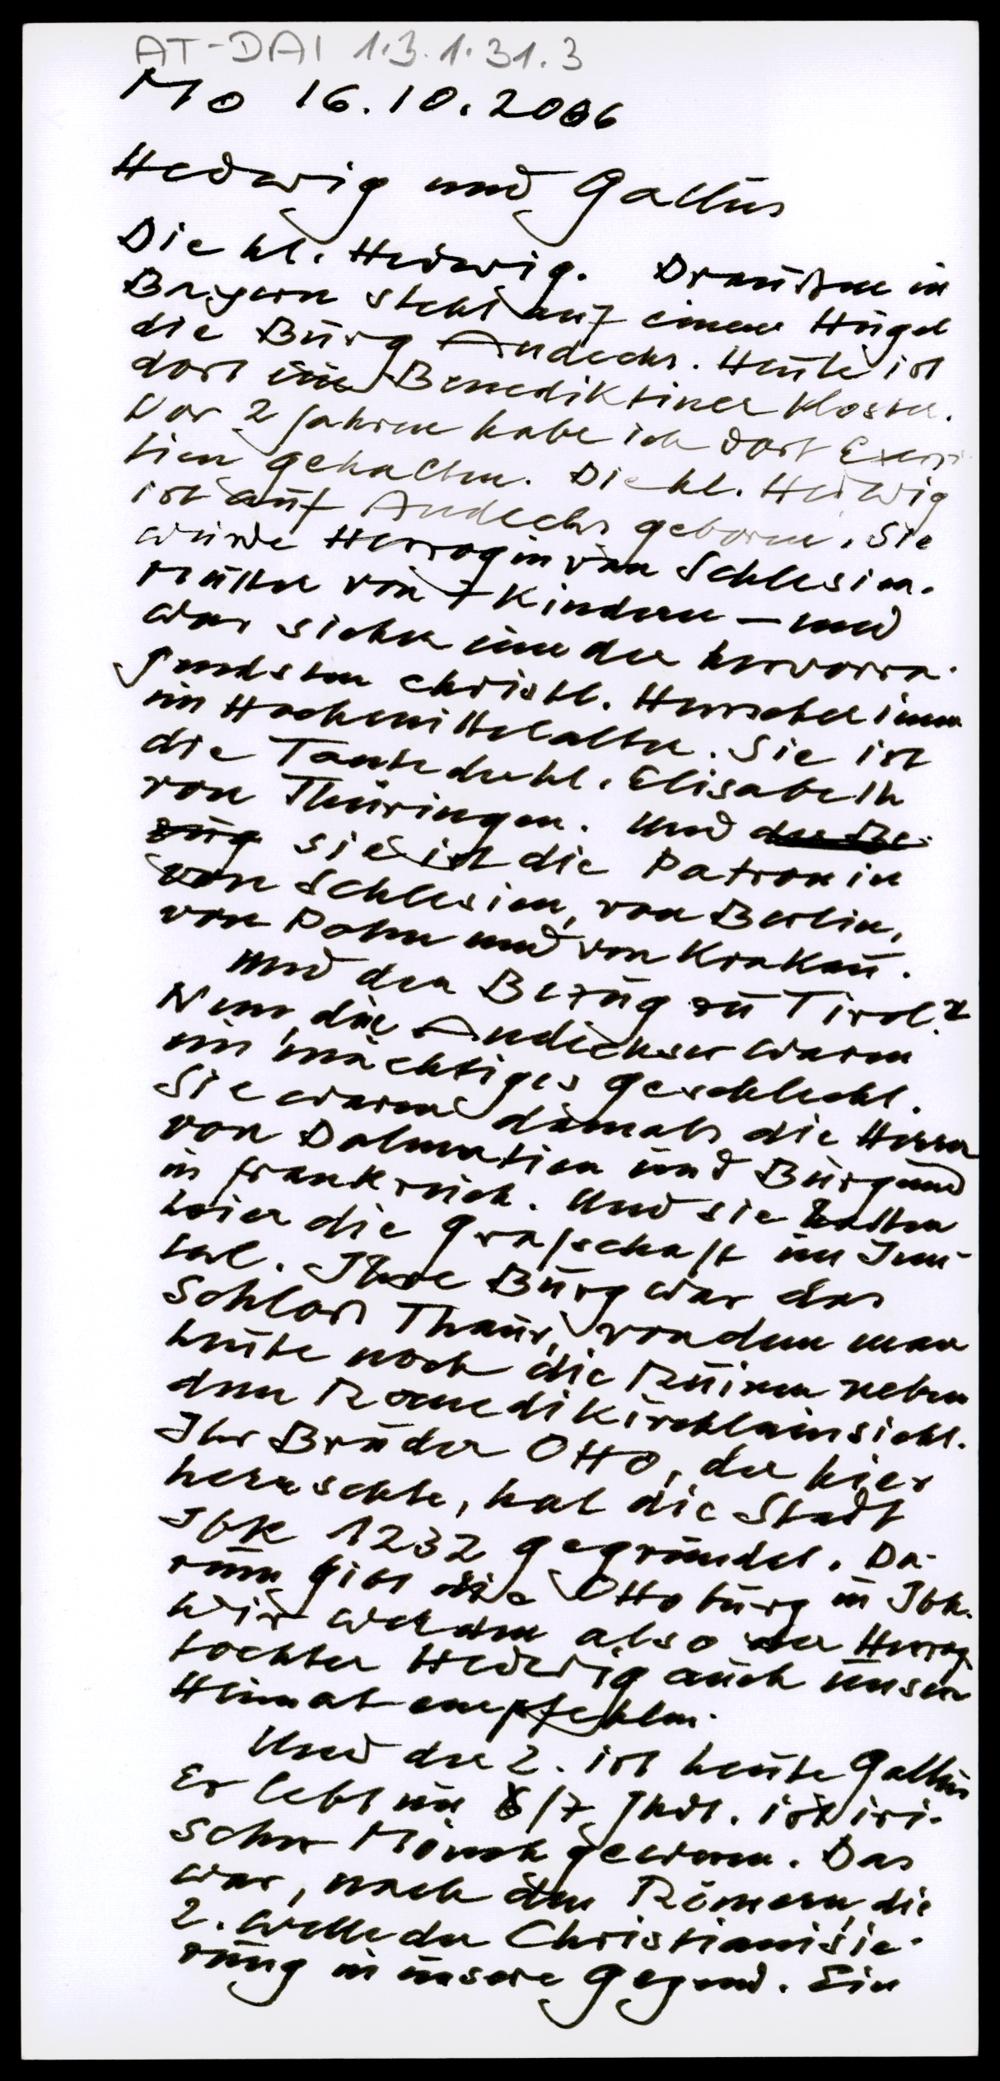 AT-DAI 1.3.1.31.3
Mo 16.10.2006
Hedwig und Gallus
Die hl. Hedwig. Draußen in
Bayern steht auf einem Hügel
die Burg Andechs. Heute ist
dort ein Benediktiner Kloster.
Vor 2 Jahren habe ich dort Exerzi
tien gehalten. Die hl. Hedwig
ist auf Andechs geboren. Sie
wurde Herzogin von Schlesien.
Mutter von 7 Kindern – und
war sicher eine der hervorra-
gendsten christl. Herrscherinnen
im Hochmittelalter. Sie ist
die Tante der hl. Elisabeth
von Thüringen. Und der Be-
zug sie ist die Patronin
von Schlesien, von Berlin,
von Polen und von Krakau.
Und den Bezug zu Tirol?
Nun, die Andechser waren
ein mächtiges Geschlecht.
Sie waren damals die Herren
von Dalmatien und Burgund
in Frankreich. Und sie hatten
hier die Grafschaft im Inn-
tal. Ihre Burg war das
Schloß Thaur, von dem man
heute noch die Ruinen neben
dem Romedikirchlein sieht.
Ihr Bruder Otto, der hier
herrschte, hat die Stadt
Ibk 1232 gegründet. Da-
rum gibt die Ottoburg in Ibk.
Wir werden also der Herzog
tochter Hedwig auch unsere
Heimat empfehlen.
Und der 2. ist heute Gallus
Er lebt im 6/7. Jhdt. ist iri-
scher Mönch gewesen. Das
war, nach den Römern, die
2. Welle der Christianisie-
rung in unsere Gegend. Ein